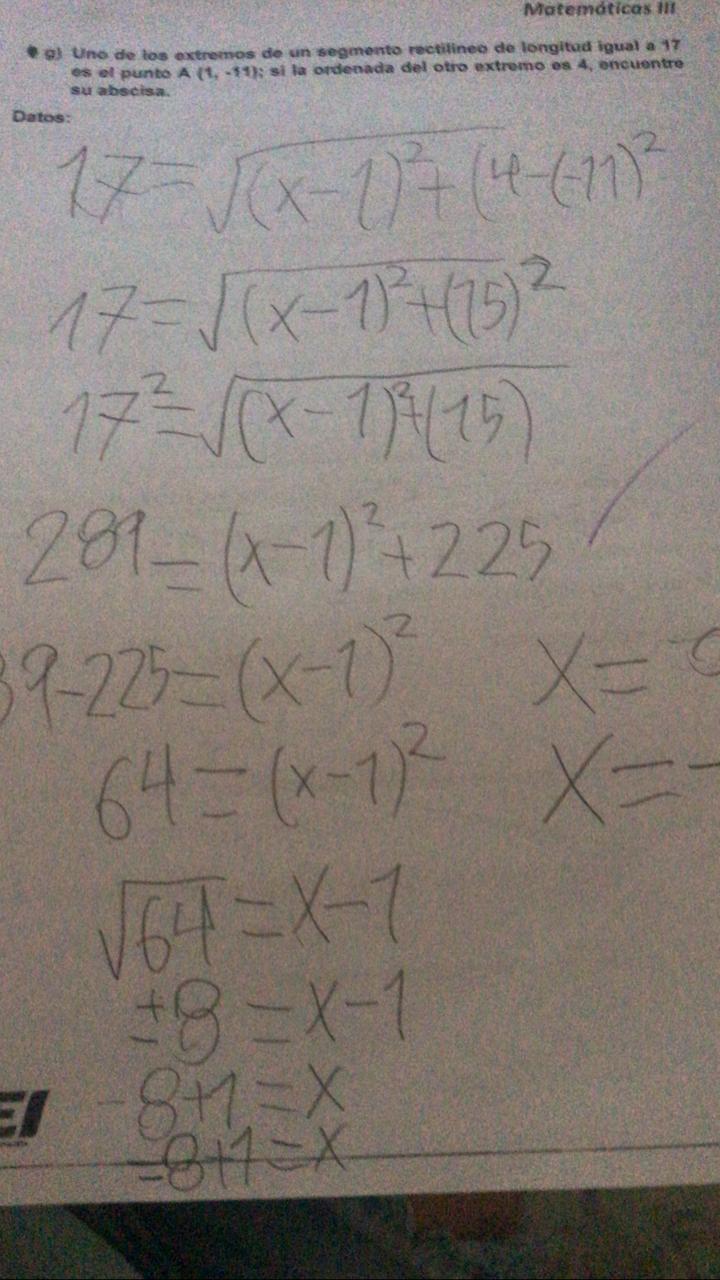 Matemáticas III
g) Uno de los extremos de un segmento rectilíneo de longitud igual a 17
es el punto A (1, -11); si la ordenada del otro extremo es 4, encuentre
su abscisa.
Datos:
17=√(x-1)²+(4-(-11)²
17=√(x-1)²+(15)²
17²=√(x-1)²+(15)
289=(x-1)²+225
89-225=(x-1)²
x=-
64=(x-1)²
x=-
√64=x-1
±8=x-1
-8+1=x
-8+1=x
EI